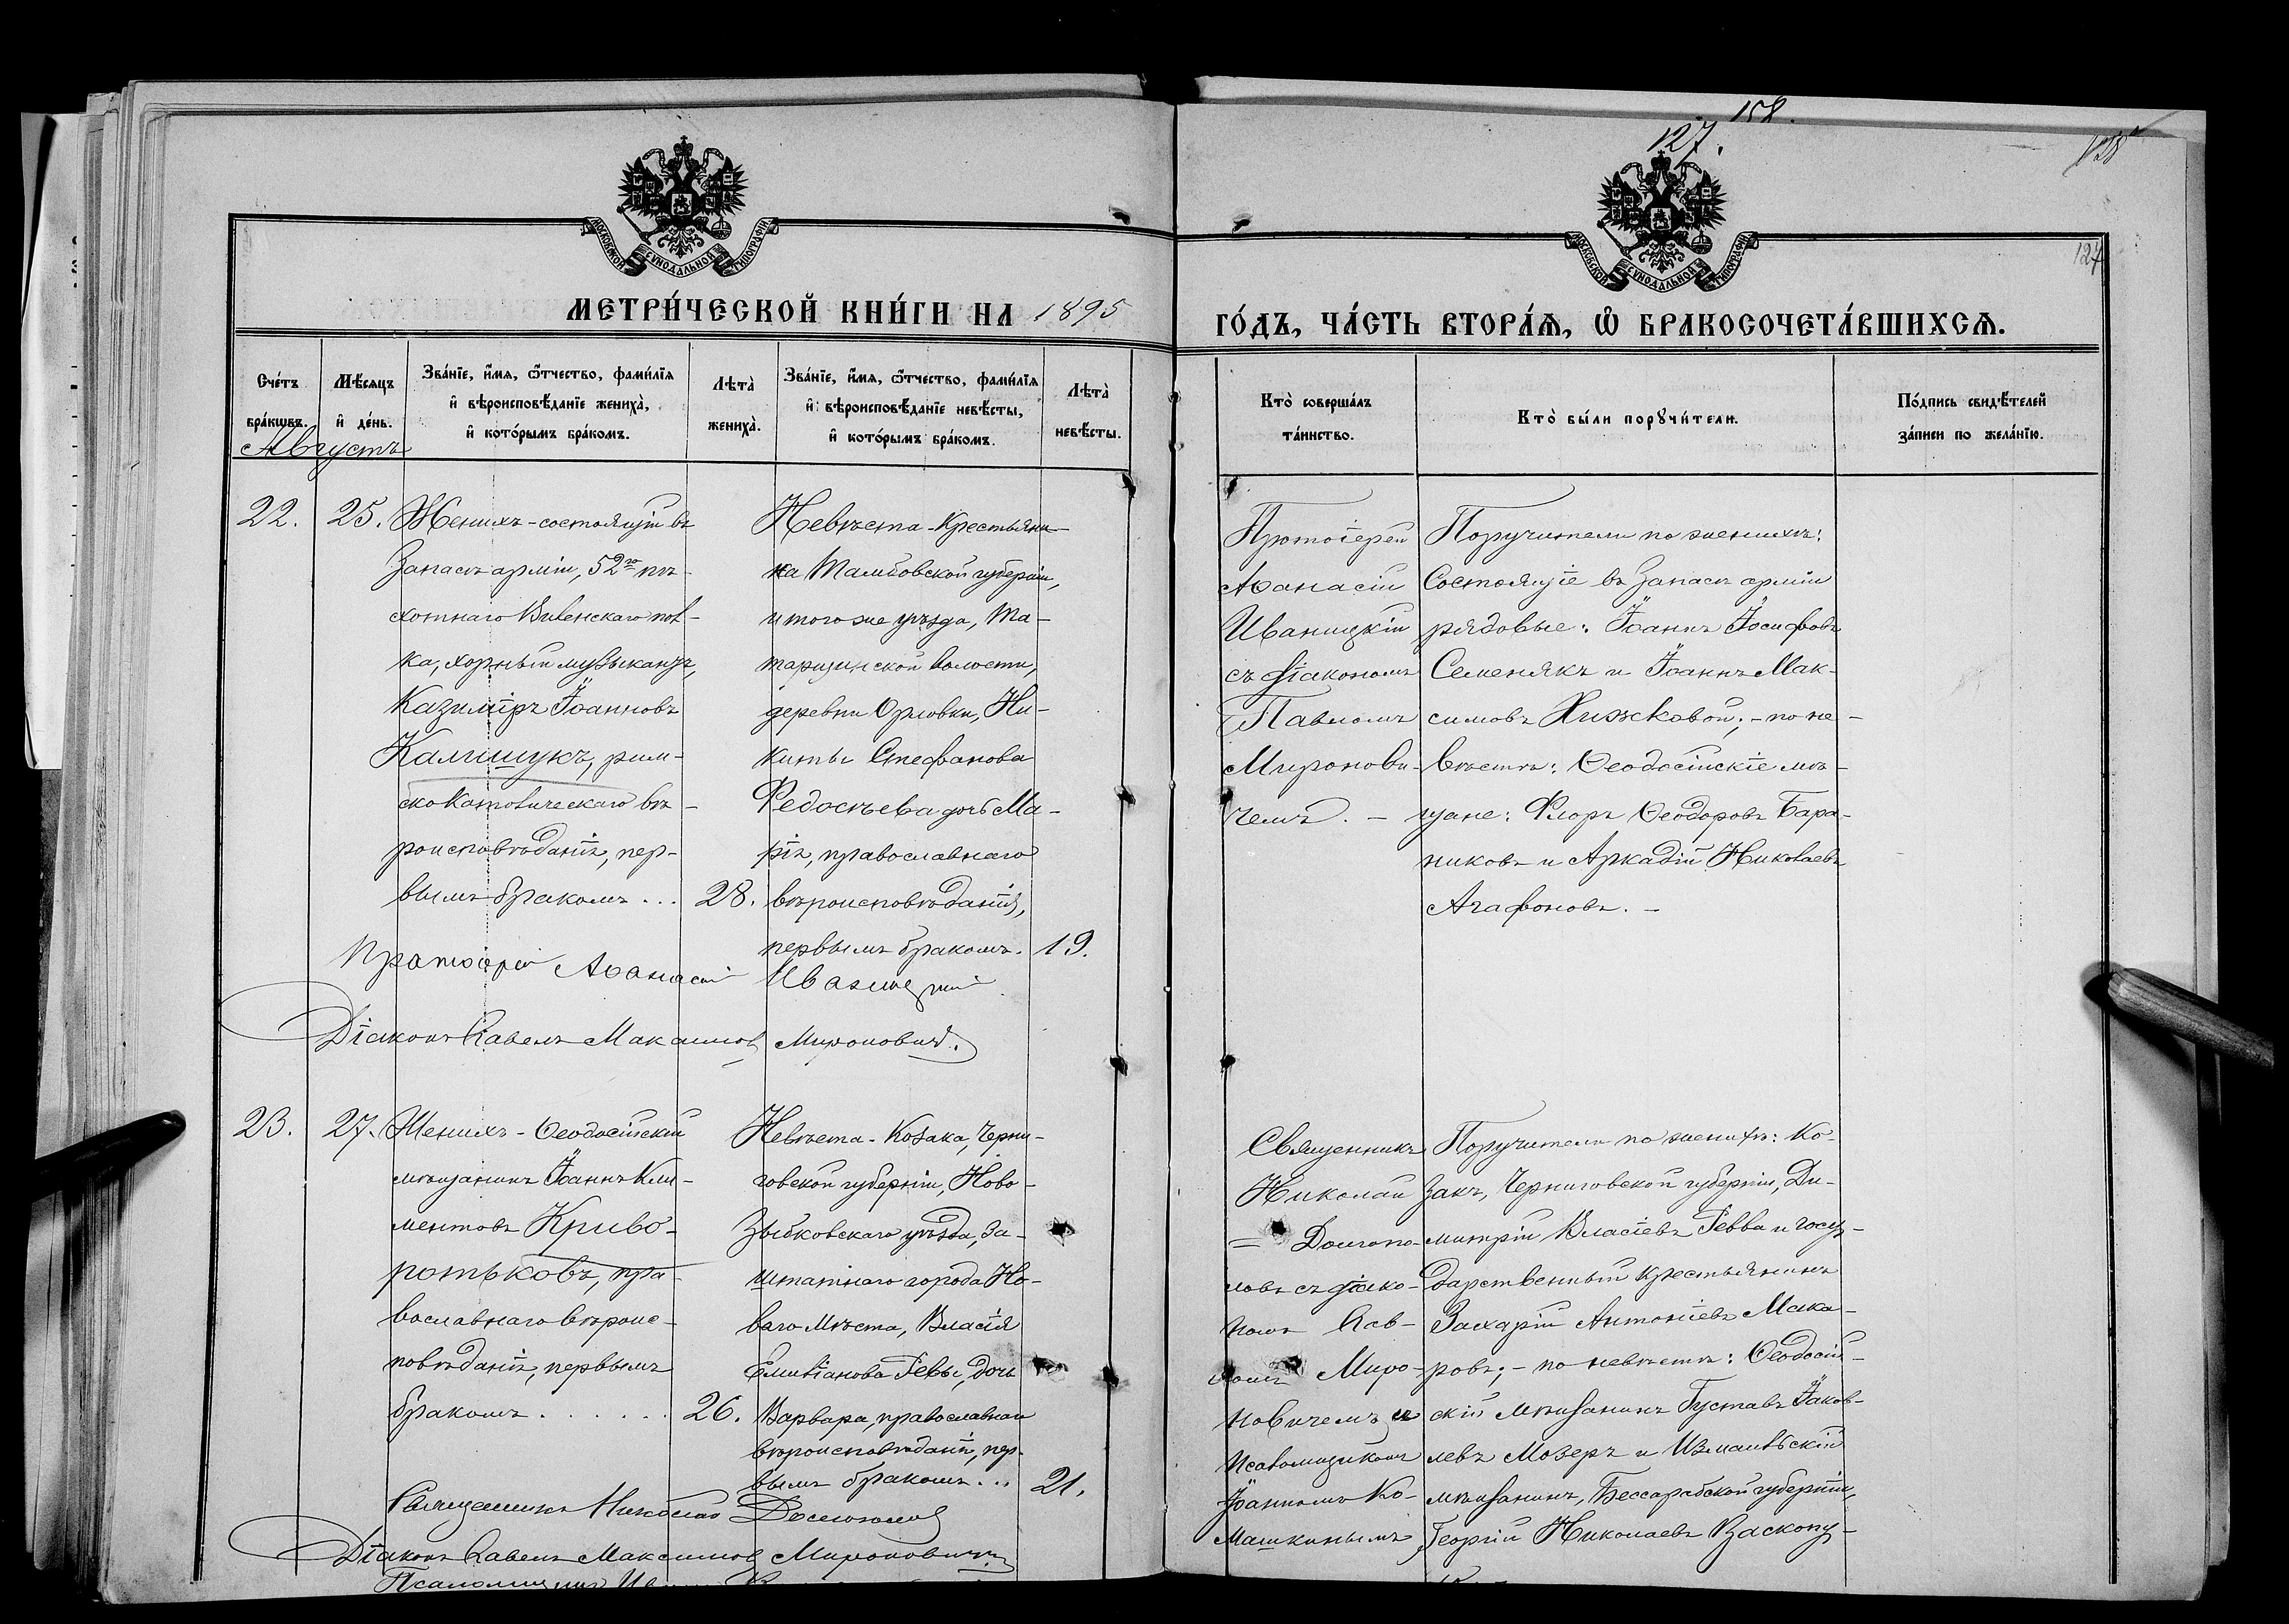 158.
127.
128
124
МОСКОВСКОЙ СѴНОДАЛЬНОЙ ТИПОГРАФІИ
МОСКОВСКОЙ СѴНОДАЛЬНОЙ ТИПОГРАФІИ
МЕТРИ́ЧЕСКОЙ КНИ́ГИ НА 1895
ГО́ДЪ, ЧА́СТЬ ВТОРА́Ѧ, Ѽ БРАКОСОЧЕТА́ВШИХСѦ.
Сче́тъ бра́кѡвъ.
Мѣ́сяцъ и҆ де́нь.
Зва́нїе, и҆́мѧ, ѻ҆́тчество, фами́лїѧ и҆ вѣроисповѣ́данїе жениха̀, и҆ кото́рымъ бра́комъ.
Лѣта̀ жениха̀.
Зва́нїе, и҆́мѧ, ѻ҆́тчество, фами́лїѧ и҆ вѣроисповѣ́данїе невѣ́сты, и҆ кото́рымъ бра́комъ.
Лѣта̀ невѣ́сты.
Кто̀ соверша́лъ та́инство.
Кто̀ бы́ли порꙋчи́тели.
По́дпись свидѣ́телей за́писи по жела́нїю.
Августъ
22.
25.
Женихъ - состоящій въ
Запасѣ арміи, 52го пѣ-
хотнаго Виленскаго пол-
ка, хорный музыкантъ,
Казиміръ Іоанновъ
Калишукъ, рим-
скокатолическаго вѣ-
роисповѣданія, пер-
вымъ бракомъ ...
28.
Невѣста - Крестьяни-
на Тамбовской губерніи,
и того же уѣзда, Та-
тарщинской волости,
деревни Орловки, Ни-
киты Стефанова
Федосѣева дочь Ма-
рія, православнаго
вѣроисповѣданія,
первымъ бракомъ.
19.
Протоіерей Аѳанасій Иваницкій
Діаконъ Павелъ Максимовъ Мироновичъ.
Протоіерей
Аѳанасій
Иваницкій
съ діакономъ
Павломъ
Миронови-
чемъ. -
Поручители по женихѣ:
Состоящіе въ Запасѣ арміи
рядовые: Іоаннъ Іосифовъ
Семенякъ и Іоаннъ Мак-
симовъ Хижковой; - по не-
вѣстѣ: Ѳеодосійскіе мѣ-
щане: Флоръ Ѳеодоровъ Бара-
никовъ и Аркадій Николаевъ
Агафоновъ. -
23.
27.
Женихъ - Ѳеодосійскій
мѣщанинъ Іоаннъ Кли-
ментовъ Криво-
ротьковъ, пра-
вославнаго вѣроис-
повѣданія, первымъ
бракомъ . . . . . .
26.
Невѣста - Козака, Черни-
говской губерніи, Ново-
Зыбковскаго уѣзда, За-
штатнаго города Но-
ваго Мѣста, Власія
Емиліанова Геввы, дочь
Варвара, православнаго
вѣроисповѣданія, пер-
вымъ бракомъ ...
21.
Священникъ Николай Долгополовъ
Діаконъ Павелъ Максимовъ Мироновичъ
Псаломщикъ
Священникъ
Николай
Долгопо-
ловъ съ діако-
номъ Пав-
ломъ Миро-
новичемъ и
псаломщикомъ
Іоанномъ Ко-
машкинымъ
Поручители по женихѣ: Ко-
закъ, Черниговской губерніи, Ди-
митрій Власіевъ Гевва и госу-
дарственный крестьянинъ
Захарій Антоніевъ Мака-
ровъ; - по невѣстѣ: Ѳеодосій-
скій мѣщанинъ Густавъ Іаков-
левъ Мозеръ и Измаильскій
мѣщанинъ, Бессарабской губерніи,
Георгій Николаевъ Васкопу-